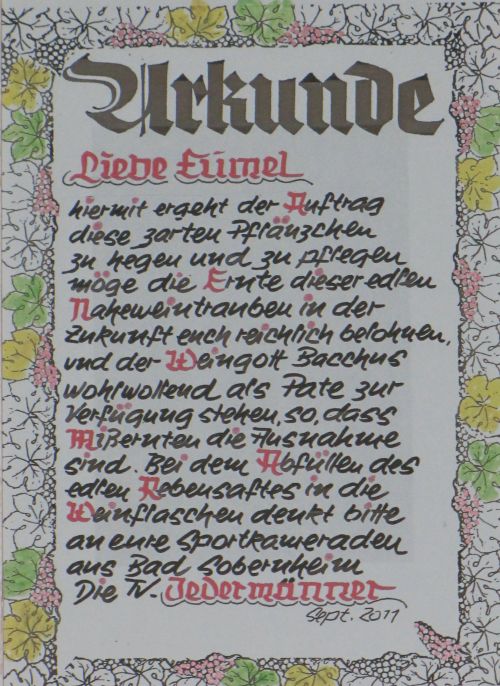 Urkunde
Liebe Eumel
hiermit ergeht der Auftrag
diese zarten Pflänzchen
zu hegen und zu pflegen
möge die Ernte dieser edlen
Naheweintrauben in der
Zukunft euch reichlich belohnen,
und der Weingott Bacchus
wohlwollend als Pate zur
Verfügung stehen, so, dass
Mißernten die Ausnahme
sind. Bei dem Abfüllen des
edlen Rebensaftes in die
Weinflaschen denkt bitte
an eure Sportkameraden
aus Bad Sobernheim
Die TV. Jedermänner
Sept. 2011